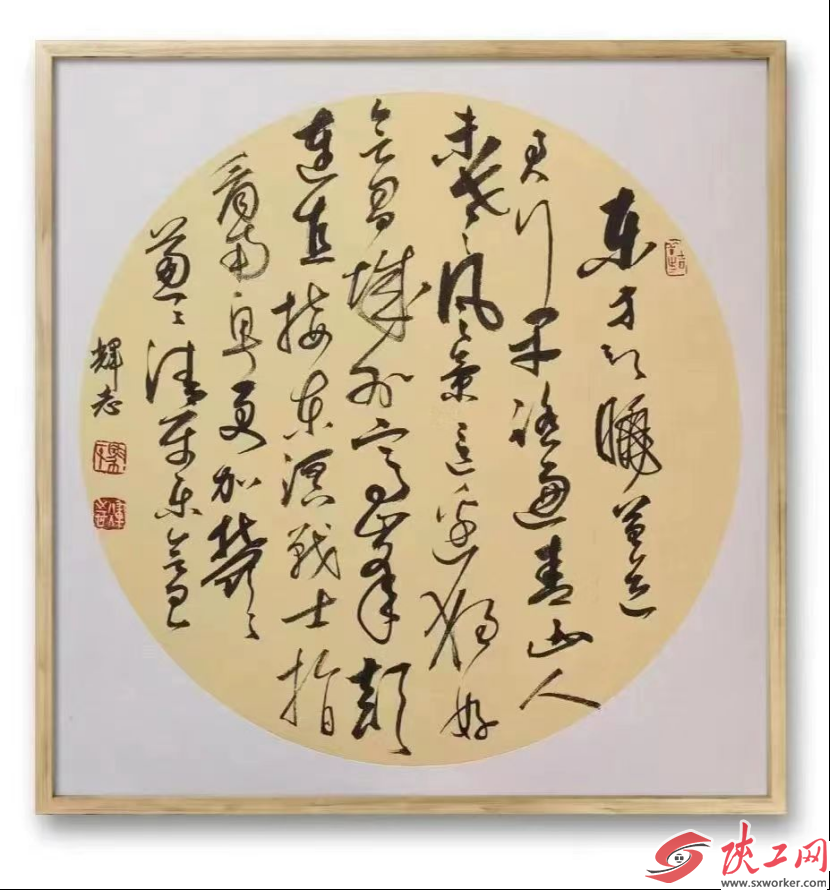 东方欲曉莫道
君行早踏遍青山人
未老风景這边独好
会昌城外高峰颠
連直接东溟战士指
看南粤更加郁々
葱々清平乐会昌
輝志
陕工网
www.sxworker.com